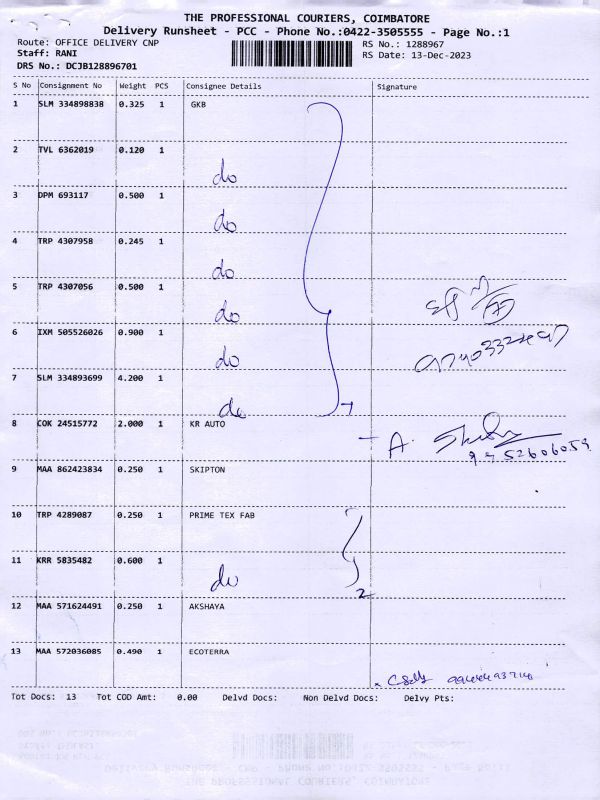 THE PROFESSIONAL COURIERS, COIMBATORE
Delivery Runsheet - PCC - Phone No.:0422-3505555 - Page No.:1
Route: OFFICE DELIVERY CNP RS No.: 1288967
Staff: RANI RS Date: 13-Dec-2023
DRS No.: DCJB128896701
S No Consignment No Weight PCS Consignee Details Signature
1 SLM 334898838 0.325 1 GKB
2 TVL 6362019 0.120 1 do
3 DPM 693117 0.500 1 do
4 TRP 4307958 0.245 1 do
5 TRP 4307056 0.500 1 do
6 IXM 505526026 0.900 1 do
7 SLM 334893699 4.200 1 do 7
8 COK 24515772 2.000 1 KR AUTO A.
9 MAA 862423834 0.250 1 SKIPTON
10 TRP 4289087 0.250 1 PRIME TEX FAB
11 KRR 5835482 0.600 1 do 2
12 MAA 571624491 0.250 1 AKSHAYA
13 MAA 572036085 0.490 1 ECOTERRA
Tot Docs: 13 Tot COD Amt: 0.00 Delvd Docs: Non Delvd Docs: Delvy Pts: